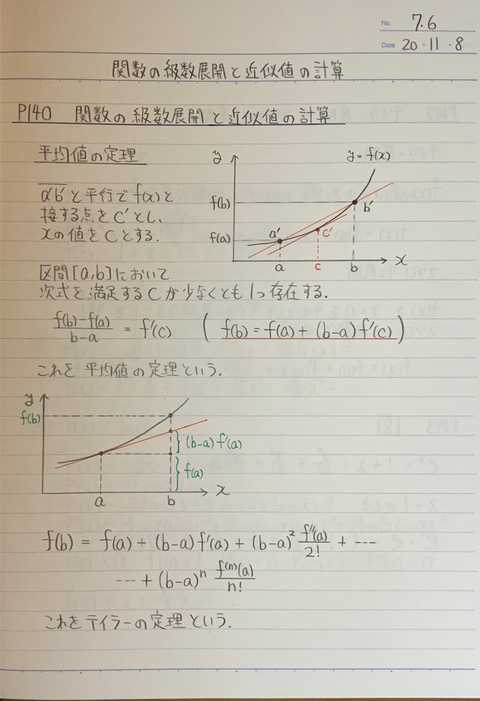 No. 7.6
Date 20・11・8
関数の級数展開と近似値の計算
P140 関数の級数展開と近似値の計算
平均値の定理
a'b'と平行でf(x)と
接する点をC'とし、
xの値をCとする.
y
y=f(x)
f(b)
b'
f(a)
a'
c'
a
c
b
x
区間[a,b]において
次式を満足するCが少なくとも1つ存在する.
f(b)-f(a)
b-a
= f'(c) ( f(b) = f(a) + (b-a) f'(c) )
これを平均値の定理という.
y
f(b)
(b-a) f'(a)
f(a)
a
b
x
f(b) = f(a) + (b-a) f'(a) + (b-a)² f''(a)/2! + ---
--- + (b-a)ⁿ f⁽ⁿ⁾(a)/n!
これをテイラーの定理という.